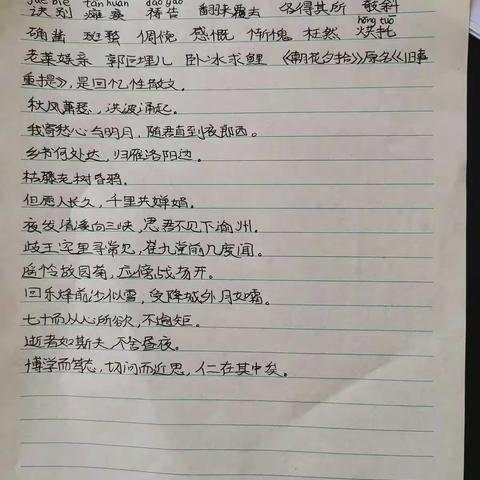 jué bié tān huàn dǎo gào
诀别 瘫痪 祷告 翻来覆去 各得其所 敧斜
hōng tuō
确凿 斑蝥 倜傥 感慨 惭愧 枉然 烘托
老莱娱亲 郭巨埋儿 卧冰求鲤 《朝花夕拾》原名《旧事
重提》,是回忆性散文。
秋风萧瑟,洪波涌起。
我寄愁心与明月,随君直到夜郎西。
乡书何处达,归雁洛阳边。
枯藤老树昏鸦。
但愿人长久,千里共婵娟。
夜发清溪向三峡,思君不见下渝州。
歧王宅里寻常见,崔九堂前几度闻。
遥怜故园菊,应傍战场开。
回乐烽前沙似雪,受降城外月如霜。
七十而从心所欲,不逾矩。
逝者如斯夫,不舍昼夜。
博学而笃志,切问而近思,仁在其中矣。